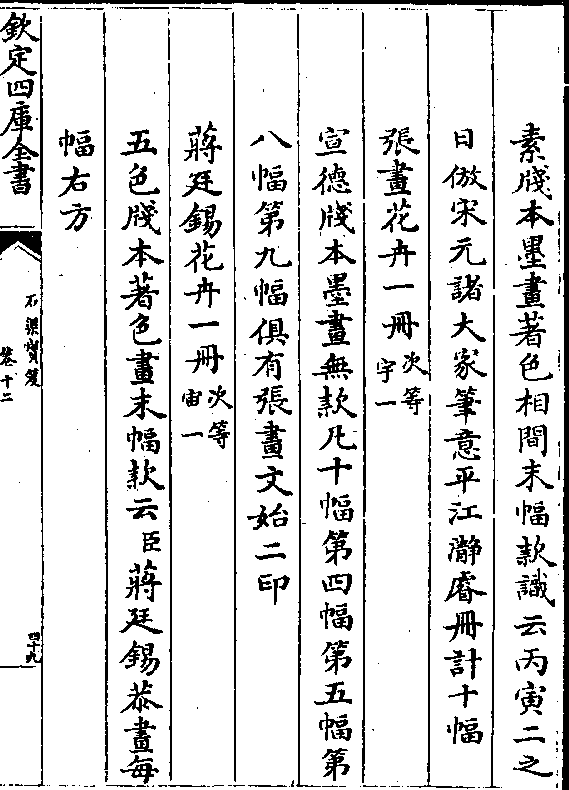 素牋本墨畫著色相間末幅款識云丙寅二之
日倣宋元諸大家筆意平江瀞睿冊計十幅
張畫花卉一冊次等宇一
宣德牋本墨畫無款凡十幅第四幅第五幅第
八幅第九幅俱有張畫文始二印
蔣廷錫花卉一冊次等宙一
五色牋本著色畫末幅款云臣蔣廷錫恭畫每
幅右方
欽定四庫全書
石渠寶笈
卷十二
四十九